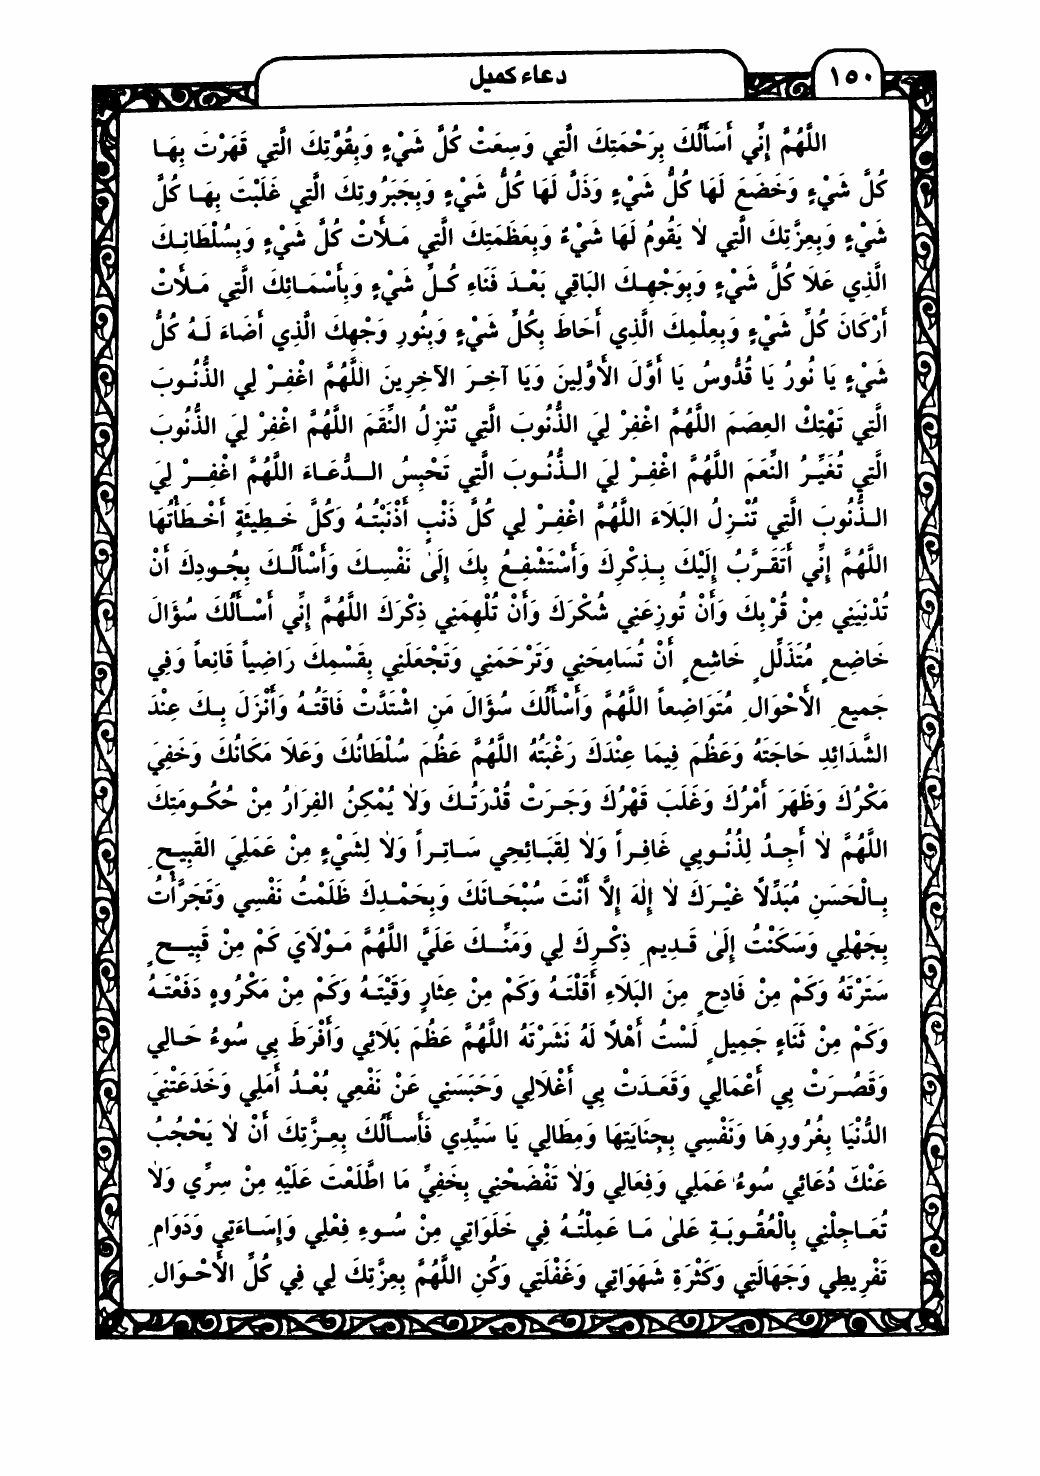 ١٥٠
دعاء كميل
اللَّهُمَّ إِنِّي أَسَأَلُكَ بِرَحْمَتِكَ الَّتِي وَسِعَتْ كُلَّ شَيْءٍ وَبِقُوَّتِكَ الَّتِي قَهَرْتَ بِهَا
كُلَّ شَيْءٍ وَخَضَعَ لَهَا كُلُّ شَيْءٍ وَذَلَّ لَهَا كُلُّ شَيْءٍ وَبِجَبَرُوتِكَ الَّتِي غَلَبْتَ بِهَا كُلَّ
شَيْءٍ وَبِعِزَّتِكَ الَّتِي لاٰ يَقُومُ لَهَا شَيْءٌ وَبِعَظَمَتِكَ الَّتِي مَلَأَتْ كُلَّ شَيْءٍ وَبِسُلْطَانِكَ
الَّذِي عَلاَ كُلَّ شَيْءٍ وَبِوَجْهِكَ البَاقِي بَعْدَ فَنَاءِ كُلِّ شَيْءٍ وَبِأَسْمَائِكَ الَّتِي مَلَأَتْ
أَرْكَانَ كُلِّ شَيْءٍ وَبِعِلْمِكَ الَّذِي أَحَاطَ بِكُلِّ شَيْءٍ وَبِنُورِ وَجْهِكَ الَّذِي أَضَاءَ لَهُ كُلُّ
شَيْءٍ يَا نُورُ يَا قُدُّوسُ يَا أَوَّلَ الأَوَّلِينَ وَيَا آخِرَ الآخِرِينَ اللَّهُمَّ اغْفِرْ لِي الذُّنُوبَ
الَّتِي تَهْتِكُ العِصَمَ اللَّهُمَّ اغْفِرْ لِيَ الذُّنُوبَ الَّتِي تُنْزِلُ النِّقَمَ اللَّهُمَّ اغْفِرْ لِيَ الذُّنُوبَ
الَّتِي تُغَيِّرُ النِّعَمَ اللَّهُمَّ اغْفِرْ لِيَ الذُّنُوبَ الَّتِي تَحْبِسُ الدُّعَاءَ اللَّهُمَّ اغْفِرْ لِيَ
الذُّنُوبَ الَّتِي تُنْزِلُ البَلاَءَ اللَّهُمَّ اغْفِرْ لِي كُلَّ ذَنْبٍ أَذْنَبْتُهُ وَكُلَّ خَطِيئَةٍ أَخْطَأْتُهَا
اللَّهُمَّ إِنِّي أَتَقَرَّبُ إِلَيْكَ بِذِكْرِكَ وَأَسْتَشْفِعُ بِكَ إِلَىٰ نَفْسِكَ وَأَسْأَلُكَ بِجُودِكَ أَنْ
تُدْنِيَنِي مِنْ قُرْبِكَ وَأَنْ تُوزِعَنِي شُكْرَكَ وَأَنْ تُلْهِمَنِي ذِكْرَكَ اللَّهُمَّ إِنِّي أَسْأَلُكَ سُؤَالَ
خَاضِعٍ مُتَذَلِّلٍ خَاشِعٍ أَنْ تُسَامِحَنِي وَتَرْحَمَنِي وَتَجْعَلَنِي بِقَسْمِكَ رَاضِياً قَانِعاً وَفِي
جَمِيعِ الأَحْوَالِ مُتَوَاضِعاً اللَّهُمَّ وَأَسْأَلُكَ سُؤَالَ مَنِ اشْتَدَّتْ فَاقَتُهُ وَأَنْزَلَ بِكَ عِنْدَ
الشَّدَائِدِ حَاجَتَهُ وَعَظُمَ فِيمَا عِنْدَكَ رَغْبَتُهُ اللَّهُمَّ عَظُمَ سُلْطَانُكَ وَعَلاَ مَكَانُكَ وَخَفِيَ
مَكْرُكَ وَظَهَرَ أَمْرُكَ وَغَلَبَ قَهْرُكَ وَجَرَتْ قُدْرَتُكَ وَلاٰ يُمْكِنُ الفِرَارُ مِنْ حُكُومَتِكَ
اللَّهُمَّ لاٰ أَجِدُ لِذُنُوبِي غَافِراً وَلاٰ لِقَبَائِحِي سَاتِراً وَلاٰ لِشَيْءٍ مِنْ عَمَلِيَ القَبِيحِ
بِالْحَسَنِ مُبَدِّلاً غَيْرَكَ لاٰ إِلٰهَ إِلاَّ أَنْتَ سُبْحَانَكَ وَبِحَمْدِكَ ظَلَمْتُ نَفْسِي وَتَجَرَّأْتُ
بِجَهْلِي وَسَكَنْتُ إِلَىٰ قَدِيمِ ذِكْرِكَ لِي وَمَنِّكَ عَلَيَّ اللَّهُمَّ مَوْلاَيَ كَمْ مِنْ قَبِيحٍ
سَتَرْتَهُ وَكَمْ مِنْ فَادِحٍ مِنَ البَلاَءِ أَقَلْتَهُ وَكَمْ مِنْ عِثَارٍ وَقَيْتَهُ وَكَمْ مِنْ مَكْرُوهٍ دَفَعْتَهُ
وَكَمْ مِنْ ثَنَاءٍ جَمِيلٍ لَسْتُ أَهْلاً لَهُ نَشَرْتَهُ اللَّهُمَّ عَظُمَ بَلاَئِي وَأَفْرَطَ بِي سُوءُ حَالِي
وَقَصُرَتْ بِي أَعْمَالِي وَقَعَدَتْ بِي أَغْلاَلِي وَحَبَسَنِي عَنْ نَفْعِي بُعْدُ أَمَلِي وَخَدَعَتْنِيَ
الدُّنْيَا بِغُرُورِهَا وَنَفْسِي بِجِنَايَتِهَا وَمِطَالِي يَا سَيِّدِي فَأَسأَلُكَ بِعِزَّتِكَ أَنْ لاٰ يَحْجُبُ
عَنْكَ دُعَائِي سُوءُ عَمَلِي وَفِعَالِي وَلاٰ تَفْضَحْنِي بِخَفِيِّ مَا اطَّلَعْتَ عَلَيْهِ مِنْ سِرِّي وَلاٰ
تُعَاجِلْنِي بِالْعُقُوبَةِ عَلىٰ مَا عَمِلْتُهُ فِي خَلَوَاتِي مِنْ سُوءِ فِعْلِي وَإِسَاءَتِي وَدَوَامِ
تَفْرِيطِي وَجَهَالَتِي وَكَثْرَةِ شَهَوَاتِي وَغَفْلَتِي وَكُنِ اللَّهُمَّ بِعِزَّتِكَ لِي فِي كُلِّ الأَحْوَالِ